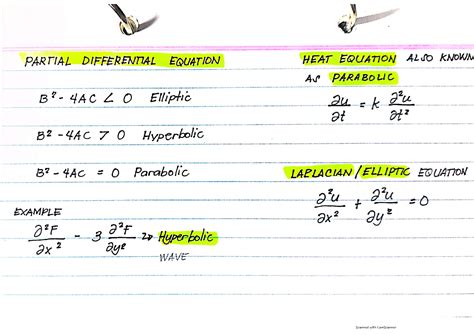 PARTIAL DIFFERENTIAL EQUATION
B² - 4AC < 0 Elliptic
B² - 4AC > 0 Hyperbolic
B² - 4AC = 0 Parabolic
EXAMPLE
∂²F/∂x² - 3 ∂²F/∂y² → Hyperbolic
WAVE
HEAT EQUATION ALSO KNOWN
AS PARABOLIC
∂u/∂t = k ∂²u/∂t²
LAPLACIAN / ELLIPTIC EQUATION
∂²u/∂x² + ∂²u/∂y² = 0
Scanned with CamScanner